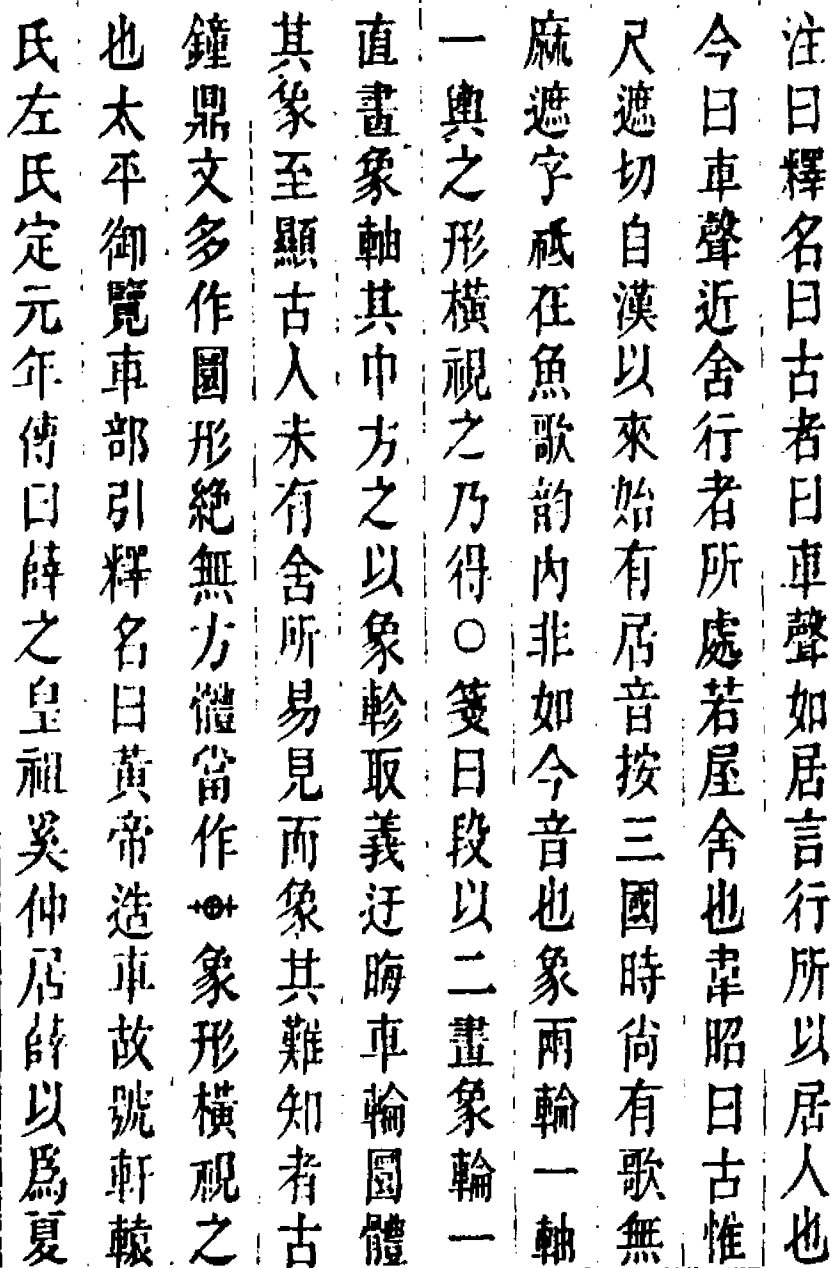 注曰釋名曰古者曰車聲如居言行所以居人也
今曰車聲近舍行者所處若屋舍也韋昭曰古惟
尺遮切自漢以來始有居音按三國時尙有歌無
麻遮字祗在魚歌韵內非如今音也象兩輪一軸
一輿之形橫視之乃得○箋曰段以二畫象輪一
直畫象軸其中方之以象軫取義迂晦車輪圓體
其象至顯古人未有舍所易見而象其難知者古
鐘鼎文多作圓形絶無方體當作象形橫視之
也太平御覽車部引釋名曰黃帝造車故號軒轅
氏左氏定元年傳曰薛之皇祖奚仲居薛以爲夏